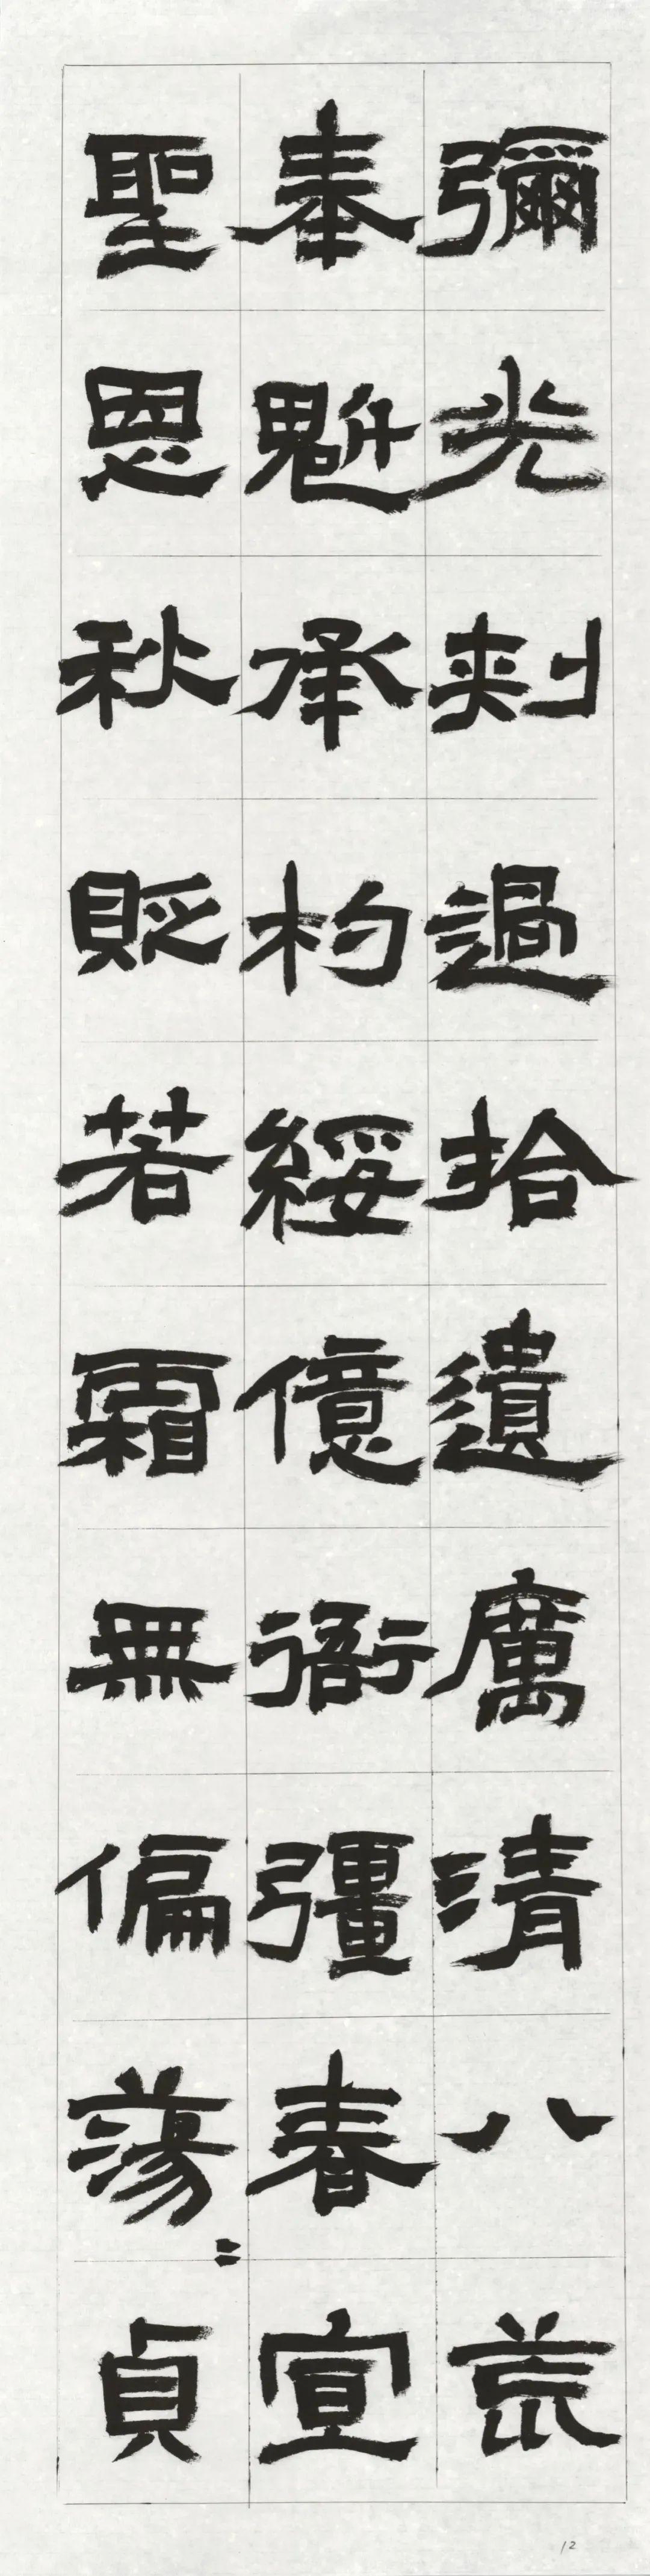 彌光刺過拾遺厲清八荒
奉魁承杓綏億衙彊春宣
聖恩秋貶若霜無偏蕩〻貞
12